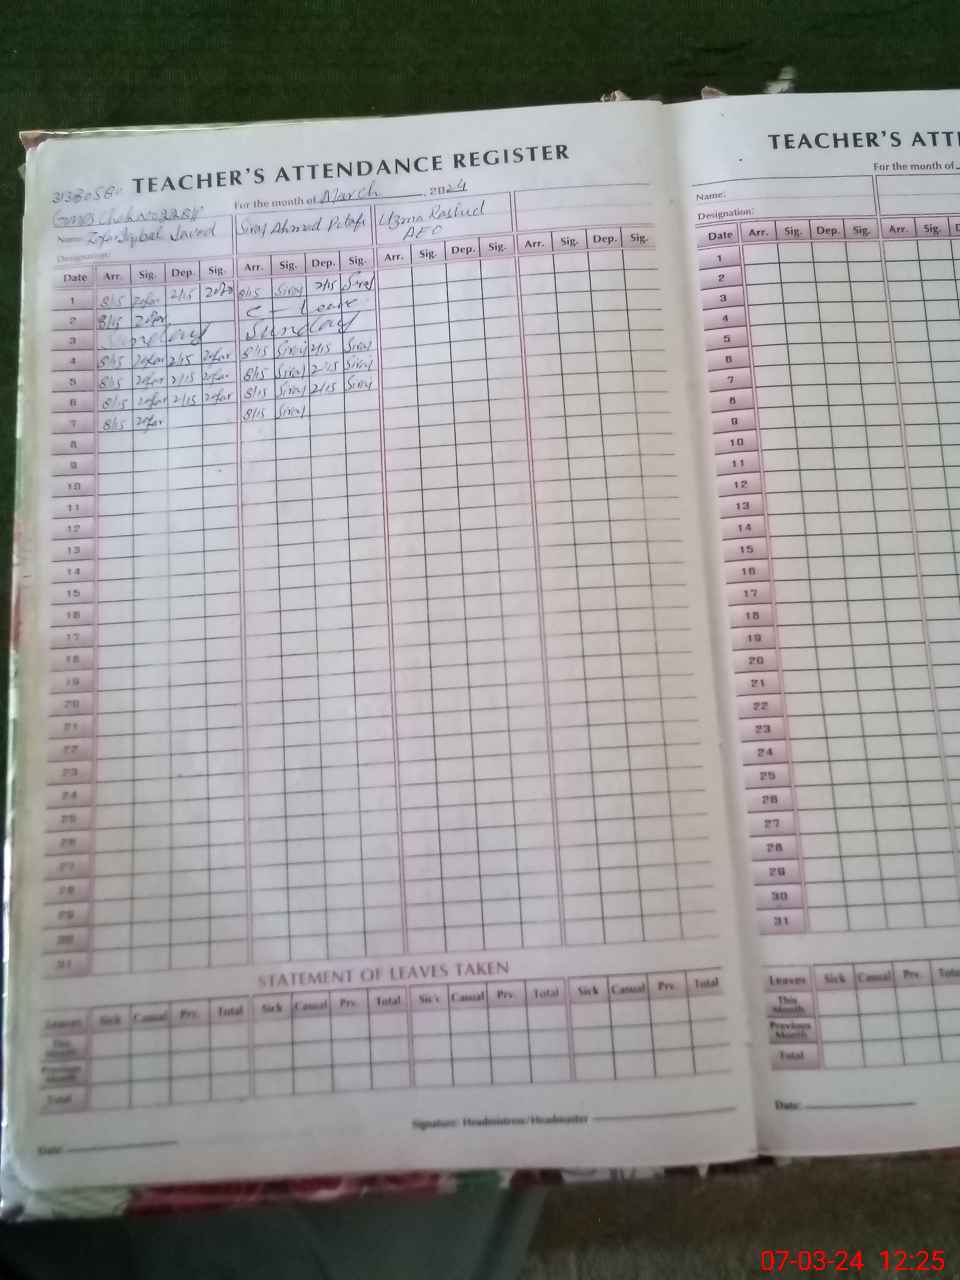 TEACHER'S ATTENDANCE REGISTER
For the month of March 2024
Name: Zafar Iqbal Javed Siraj Ahmad Pitafi Uzma Rashid
Designation: AEO
Date Arr. Sig. Dep. Sig. Arr. Sig. Dep. Sig. Arr. Sig. Dep. Sig. Arr. Sig. Dep. Sig.
1 8/15 Zafar 2/15 Zafar 8/15 Siraj 2/15 Siraj
2 8/15 Zafar C - Leave
3 Sunday Sunday
4 8/15 Zafar 2/15 Zafar 8/15 Siraj 2/15 Siraj
5 8/15 Zafar 2/15 Zafar 8/15 Siraj 2/15 Siraj
6 8/15 Zafar 2/15 Zafar 8/15 Siraj 2/15 Siraj
7 8/15 Zafar 8/15 Siraj
8
9
10
11
12
13
14
15
16
17
18
19
20
21
22
23
24
25
26
27
28
29
30
31
STATEMENT OF LEAVES TAKEN
Leaves Sick Casual Prv. Total Sick Casual Prv. Total Sick Casual Prv. Total Sick Casual Prv. Total
This Month
Previous Month
Total
Signature: Headmistress/Headmaster
Date:
TEACHER'S ATTE
For the month of
Name:
Designation:
Date Arr. Sig. Dep. Sig. Arr. Sig.
1
2
3
4
5
6
7
8
9
10
11
12
13
14
15
16
17
18
19
20
21
22
23
24
25
26
27
28
29
30
31
Leaves Sick Casual Prv. Total
This Month
Previous Month
Total
Date:
07-03-24 12:25